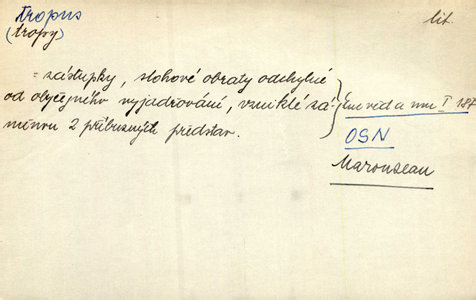 tropus
(tropy)
lit.
= zástupky, slohové obraty odchylné
od obyčejného vyjadřování, vzniklé zá-
měnou 2 příbuzných představ.
věd a um I 187
OSN
Marouzeau